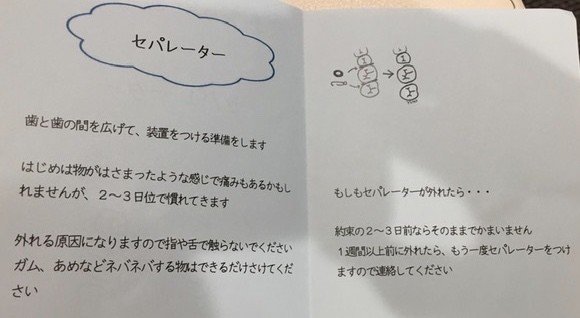 セパレーター
歯と歯の間を広げて、装置をつける準備をします
はじめは物がはさまったような感じで痛みもあるかもし
れませんが、２～３日位で慣れてきます
外れる原因になりますので指や舌で触らないでください
ガム、あめなどネバネバする物はできるだけさけてくだ
さい
もしもセパレーターが外れたら・・・
約束の２～３日前ならそのままでかまいません
１週間以上前に外れたら、もう一度セパレーターをつけ
ますので連絡してください